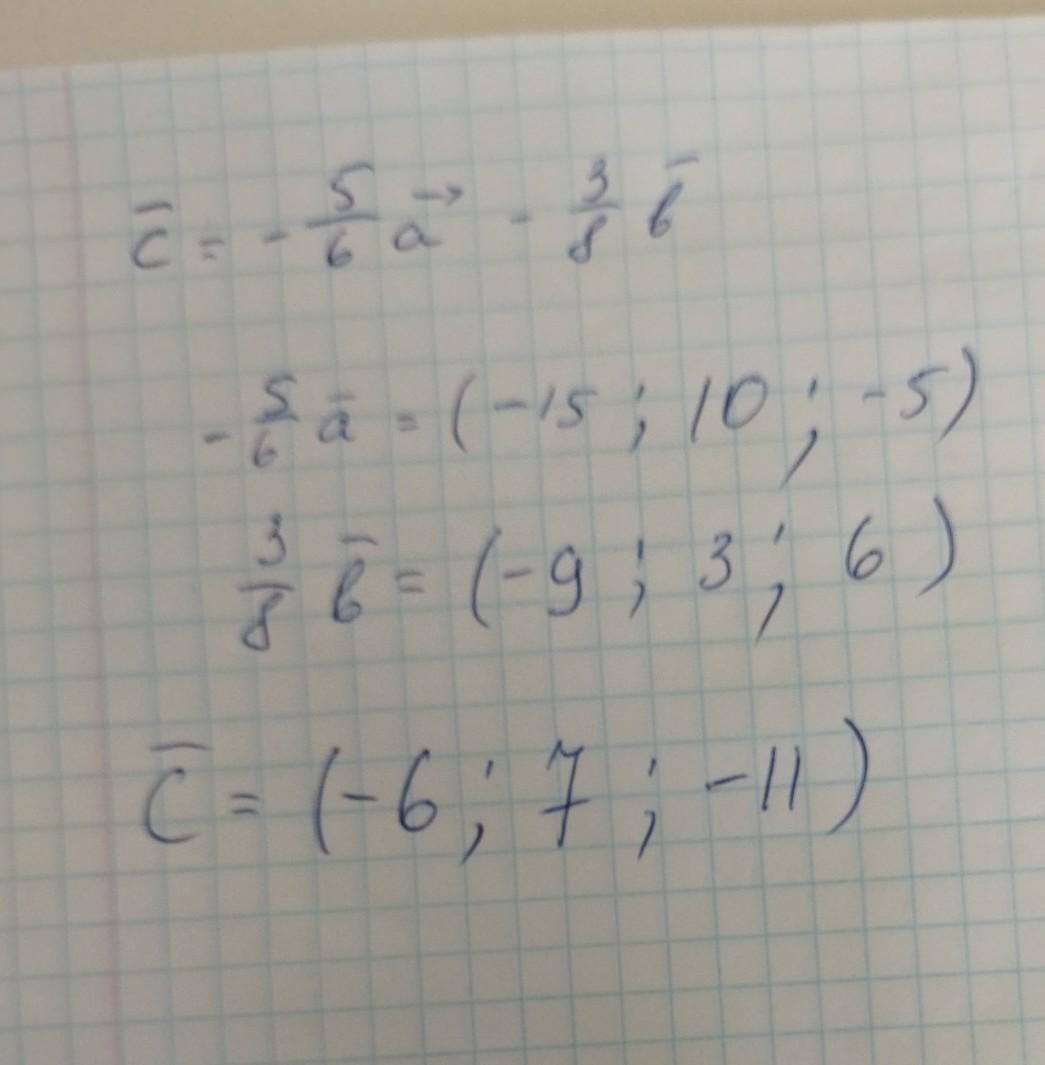 c̅ = - 5/6 a⃗ - 3/8 b̅
- 5/6 a̅ = (-15 ; 10 ; -5)
3/8 b̅ = (-9 ; 3 ; 6)
c̅ = (-6 ; 7 ; -11)